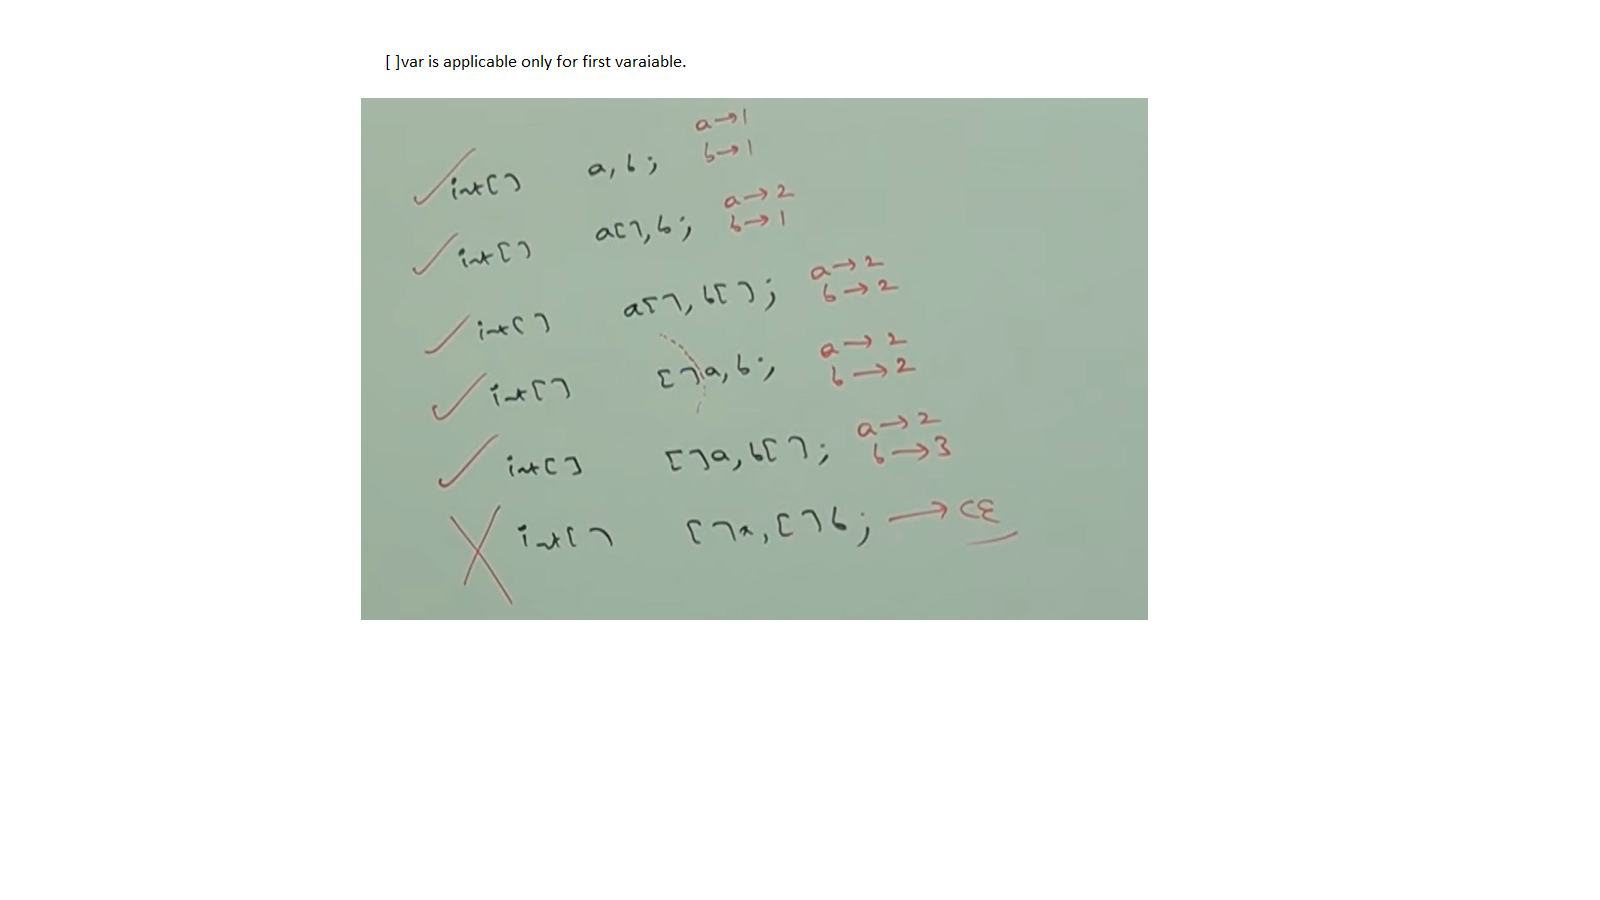 [ ]var is applicable only for first varaiable.
a→1
int[] a,b; b→1
a→2
int[] a[],b; b→1
a→2
int[] a[],b[]; b→2
a→2
int[] []a,b; b→2
a→2
int[] []a,b[]; b→3
int[] []a,[]b; → CE